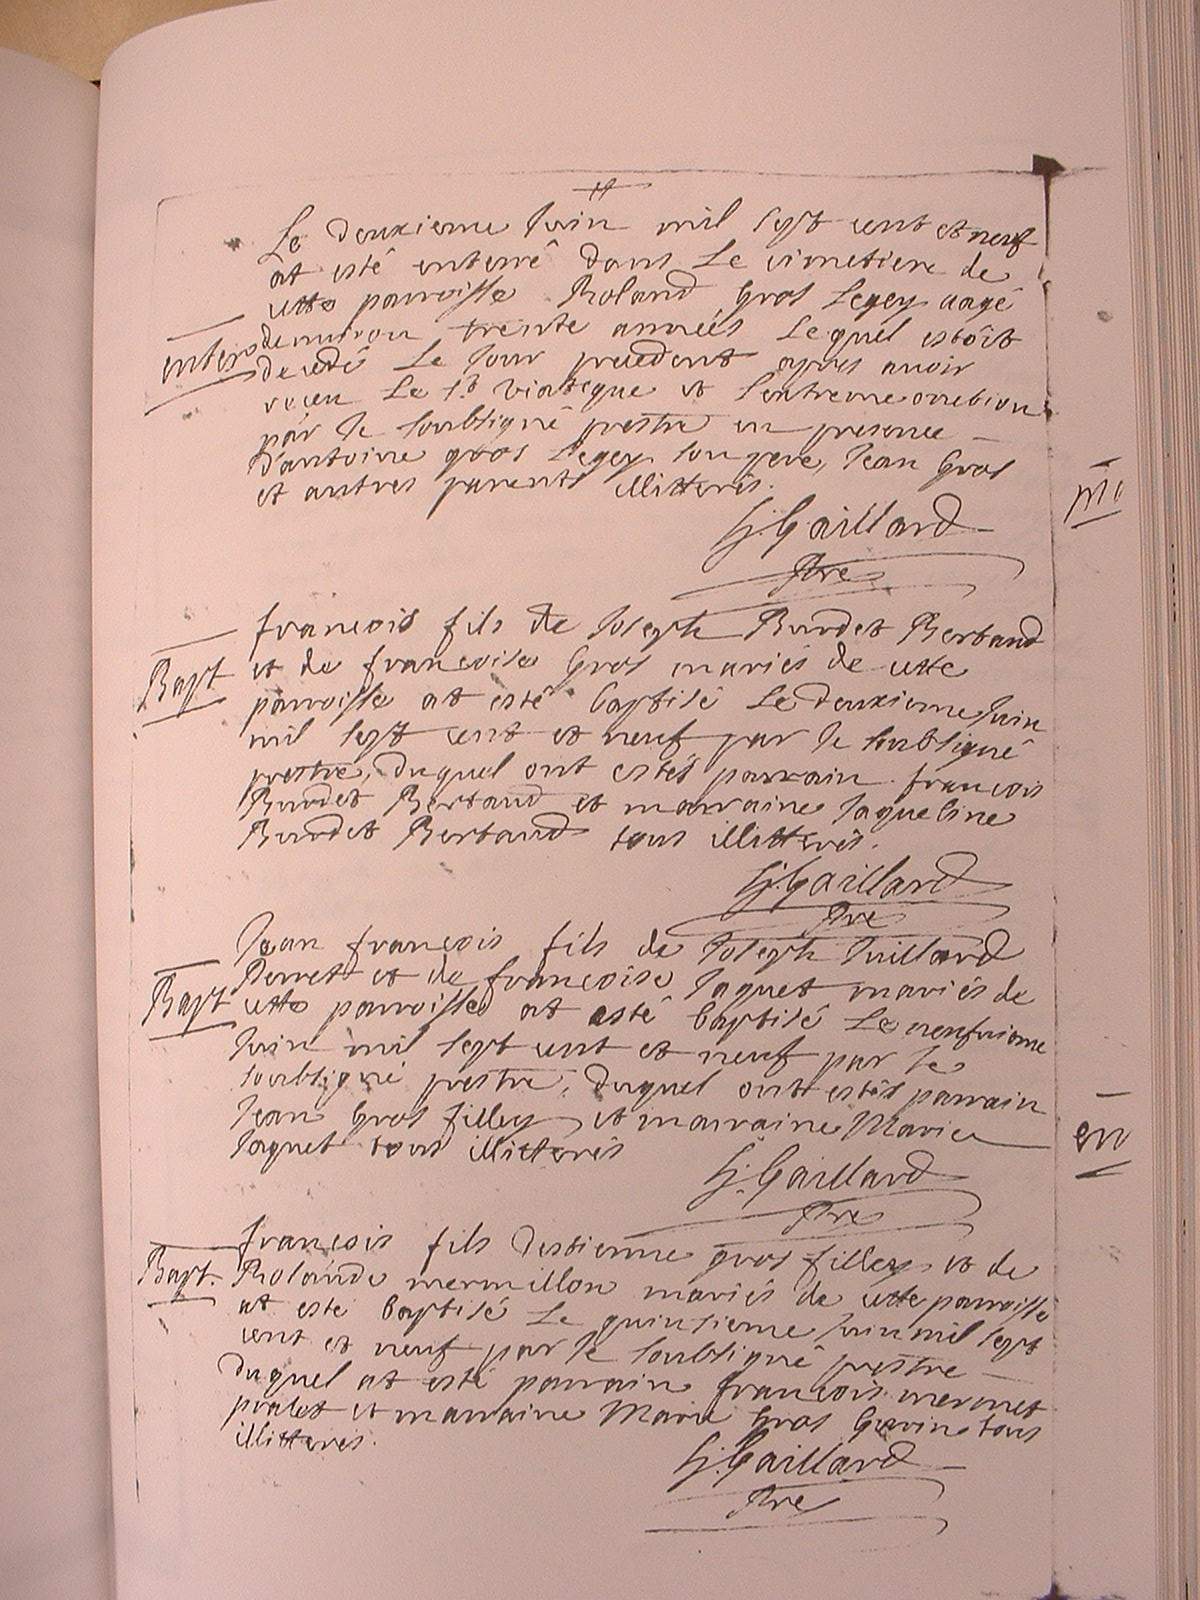 Le deuxieme Juin mil sept cent et neuf
at esté enterré dans Le cimetiere de
cette parroisse Roland Gros Legey aagé
enterr
denuiron trente années Lequel estôit
decedé Le Jour precedent apres auoir
receu Le St Viatique et Lextreme onction
par Je soubsigné prestre en presence
D'antoine gros Legey son pere, Jean Gros
et autres parents illitterés.
G. Gaillard
Pre
françois fils de Joseph Burdet Bertaud
Bapt
et de françoise Gros mariés de cette
parroisse at esté baptisé Le deuxieme Juin
mil sept cent et neuf par Je soubsigné
prestre, duquel ont estés parrain françois
Burdet Bertaud et marraine Jaqueline
Burdet Bertaud tous illitterés.
G. Gaillard
Pre
Jean françois fils de Joseph Juillard
Bapt
Perret et de françoise Jaquet mariés de
cette parroisse at esté baptisé Le neufuieme
Juin mil sept cent et neuf par Je
soubsigné prestre, duquel ont estés parrain
Jean Gros filley et marraine Marie
Jaquet tous illitterés
G. Gaillard
Pre
françois fils destienne gros filley et de
Bapt.
Rolande mermillon mariés de cette parroisse
at esté baptisé Le quinsieme Juin mil sept
cent et neuf par Je soubsigné prestre
duquel at esté parrain françois mermet
pralet et marraine Marie Gros Gurin tous
illitterés.
G. Gaillard
Pre
en